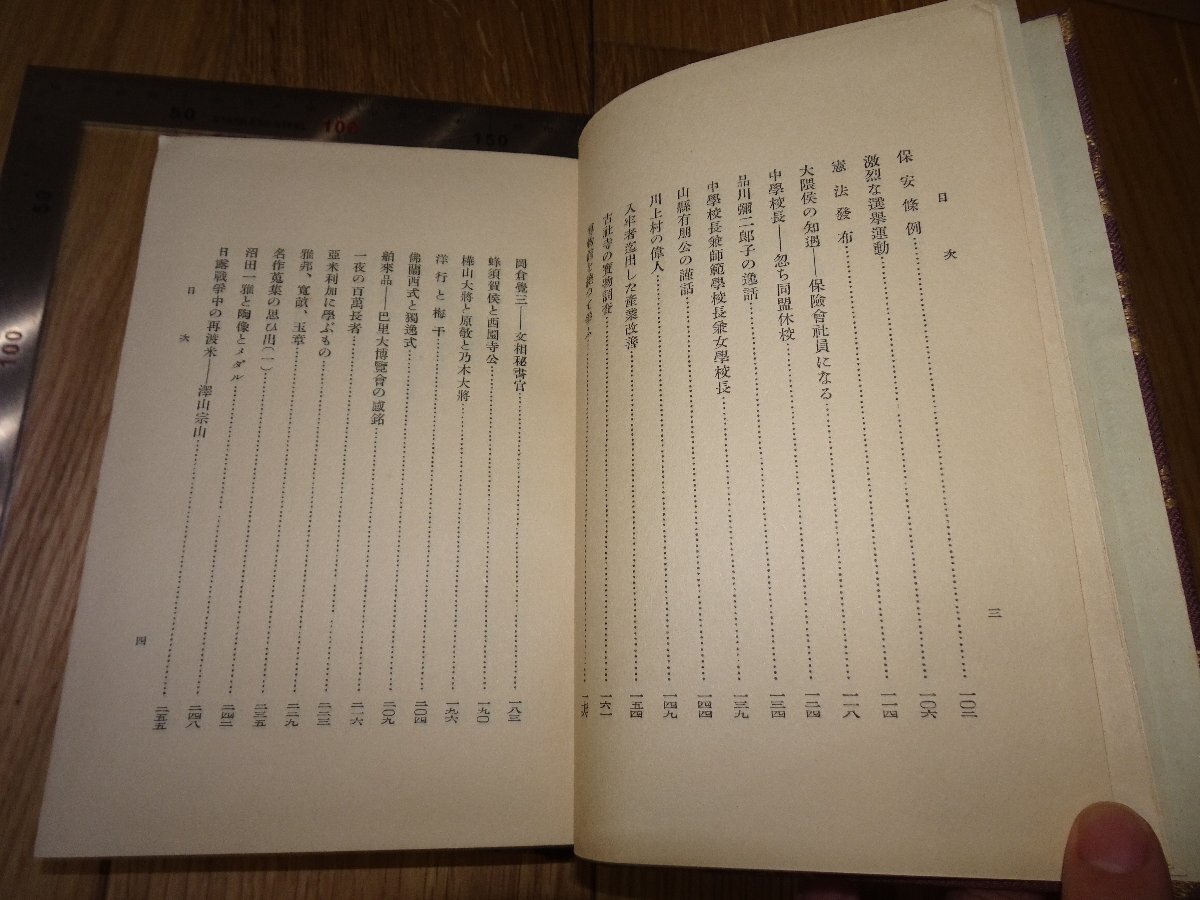 目次
保安條例……一〇二
激烈な選擧運動……一〇六
憲法發布……一一四
大隈侯の知遇――保險會社員になる……一一八
中學校長――忽ち同盟休校……一二四
品川彌二郎子の逸話……一三四
中學校長兼師範學校長兼女學校長……一三九
山縣有朋公の謹話……一四四
川上村の偉人……一四九
入牢者迄出した産業改善……一五四
古社寺の寳物調査……一六一
三
岡倉覺三――文相秘書官……一八三
蜂須賀侯と西園寺公……一九〇
樺山大將と原敬と乃木大將……一九六
洋行と梅干……二〇四
佛蘭西式と獨逸式……二〇九
舶來品――巴里大博覽會の感銘……二一六
一夜の百萬長者……二二三
亞米利加に學ぶもの……二二九
雅邦、寬畝、玉章……二三五
名作蒐集の思ひ出(一)……二四二
沼田一雅と陶像とメダル……二四八
日露戰爭中の再渡米――澤山宗山……二五五
目次
四
50
100
150
50
100